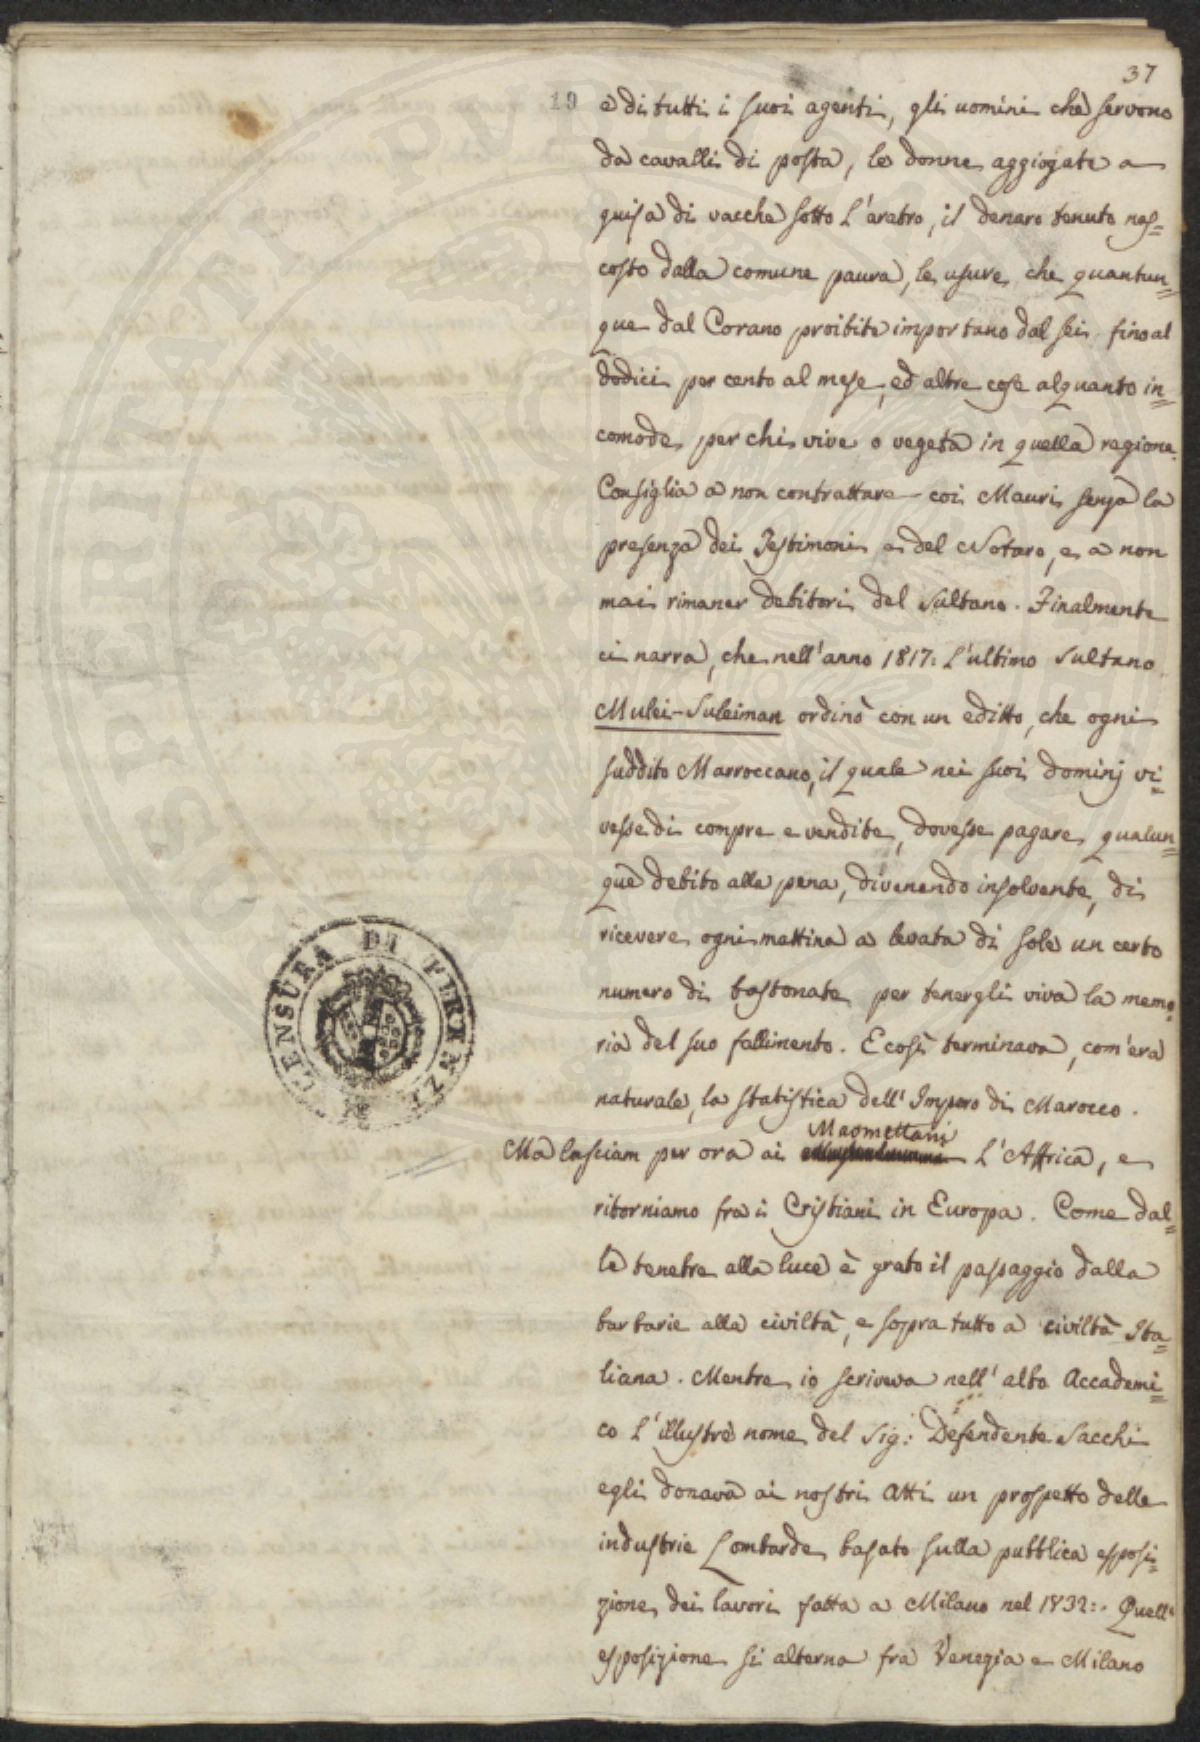 37
19
e di tutti i suoi agenti, gli uomini che servono
da cavalli di posta, le donne aggiogate a
guisa di vacche sotto l'aratro, il denaro tenuto nas=
costo dalla comune paura, le usure, che quantun=
que dal Corano proibite importano dal sei fino al
dodici per cento al mese, ed altre cose alquanto in=
comode per chi vive o vegeta in quella regione.
Consiglia a non contrattare coi Mauri senza la
presenza dei Testimoni e del Notaro, e a non
mai rimaner debitori del Sultano. Finalmente
ci narra, che nell'anno 1817: l'ultimo Sultano
Mulei-Suleiman ordinò con un editto, che ogni
suddito Marroccano, il quale nei suoi dominj vi=
vesse di compre e vendite, dovesse pagare qualun=
que debito alla pena, divenendo insolvente, di
ricevere ogni mattina a levata di sole un certo
numero di bastonate per tenergli viva la memo=
ria del suo fallimento. E così terminava, com'era
naturale, la statistica dell'Impero di Marocco.
Maomettani
Ma lasciam per ora ai l'Affrica, e
ritorniamo fra i Cristiani in Europa. Come dal=
le tenebre alla luce è grato il passaggio dalla
barbarie alla civiltà, e sopra tutto a civiltà Ita=
liana. Mentre io scriveva nell'albo Accademi=
co l'illustre nome del Sig: Defendente Sacchi
egli donava ai nostri Atti un prospetto delle
industrie Lombarde basato sulla pubblica esposi=
zione dei lavori fatta a Milano nel 1832:. Quell'
esposizione si alterna fra Venezia e Milano
CENSURA DI FIRENZE